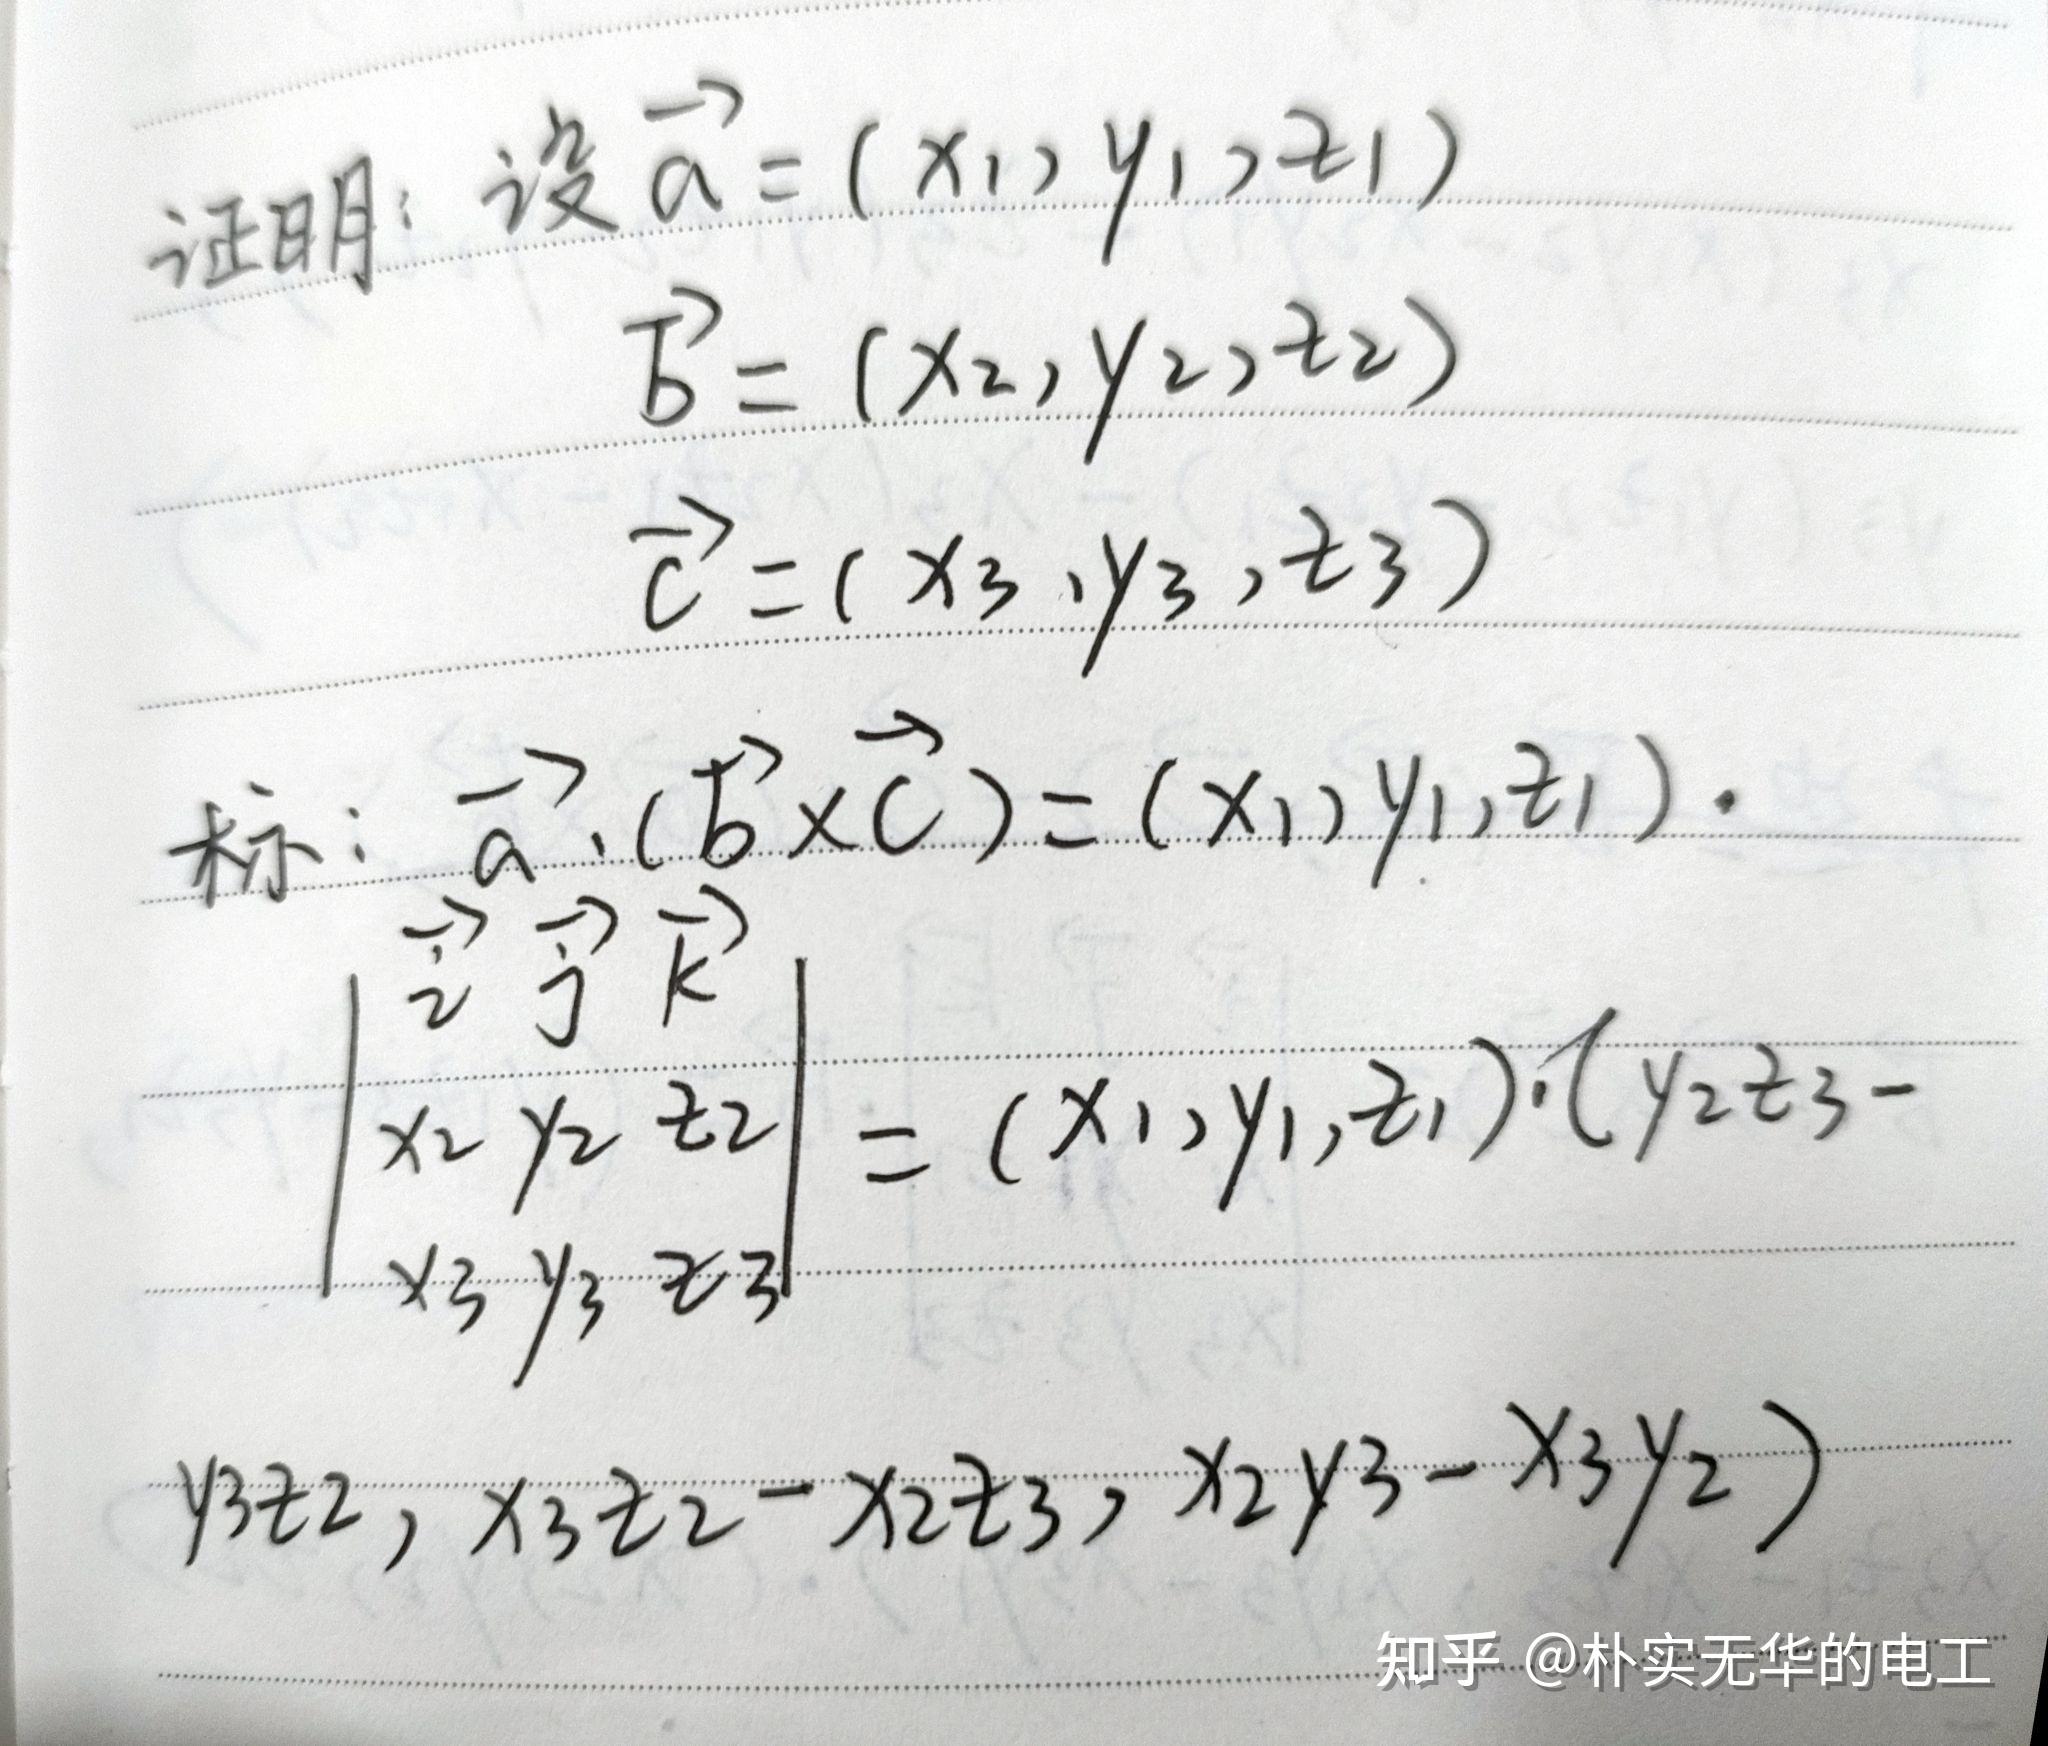 证明: 设 a⃗ = (x1, y1, z1)
b⃗ = (x2, y2, z2)
c⃗ = (x3, y3, z3)
标: a⃗·(b⃗×c⃗) = (x1, y1, z1)·
i⃗ j⃗ k⃗
| x2 y2 z2 | = (x1, y1, z1)·(y2z3-
x3 y3 z3
y3z2, x3z2-x2z3, x2y3-x3y2)
知乎 @朴实无华的电工